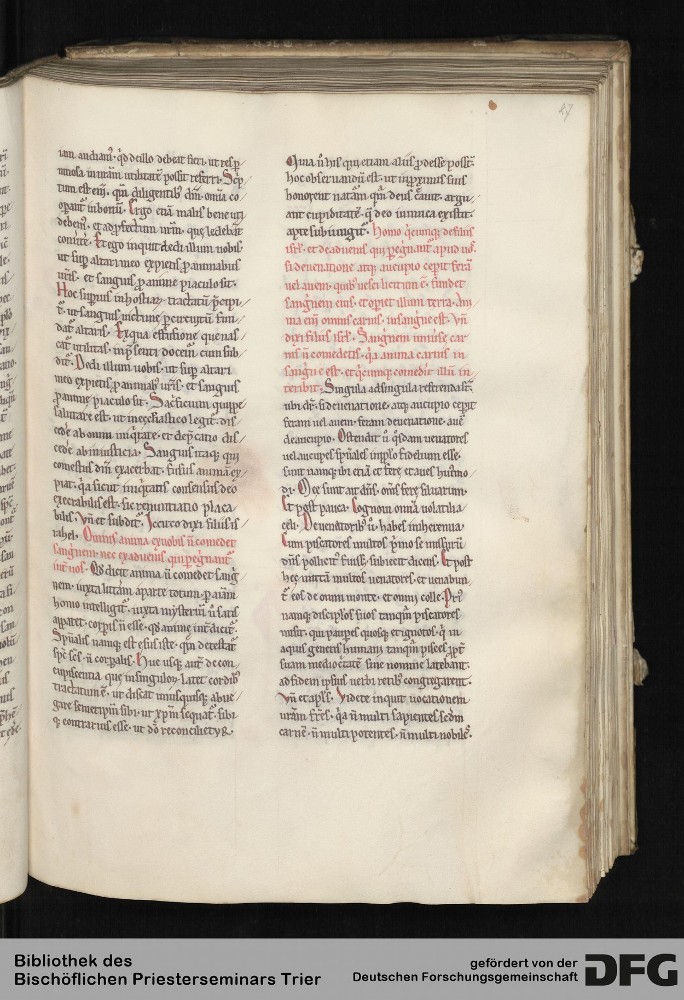 27
iam audiam᷒. qd de illo debeat fieri. ut resp
minosa in nr̄am utilitatē possit referri. Scp
tum est eni. qm diligentib; dm̄. omia co
opant᷒ in bonū. Ergo etiā malis bene uti
debem᷒. et ad pfectum nrm̄. que ledebāt
conūtē. Et ego inquit dedi illum uobis
ut sup altari meo expietis p animabus
uris. et sanguis p anime piaculo sit.
Hoc supius in hostiarz tractatu
t. ut sanguis uictime p circuytū fun
dat᷒ altaris. Ex qua effusione que nas
cat᷒ utilitas. in psenti docem᷒. cum sub
dit᷒. Dedi illum uobis. ut sup altari
meo expietis p animab; uris. et sanguis
p anime piaculo sit. Sacficium quippe
salutare est. ut in ecclesiastico legit᷒. dis
cede ab omni iniqtate. et depcatio dis
cede ab iniusticia. Sanguis itaq; qui
comestus dm̄ exacerbat. fusus animā ex
piat. qa sicut iniqtatis consensus deo
execrabilis est. sic renuntiatio placa
bilis. Vn̄ et subdit᷒. Jccirco dixi filiis is
rahel. Omnis anima ex uobis n̄ comedet
sanguinem. nec ex aduenis qui pegrinant᷒
int uos. Qd dicit anima n̄ comedet sang
nem. iuxta litt̄am a parte totum. p aīam
homo intelligit᷒. iuxta mysteriū u satis
apparet. corpis n̄ esse. qd anime int dicit᷒.
Spualis namq; est esus iste. qm detestat᷒
n̄ corpalis. Huc usq; aut de con
cupiscentia que in singulorz latet cordib;
tractatum ē. ut discat unusquisq; abne
gare semetipm̄ sibi. ut xpm̄ sequat᷒. sibi
q contrarius esse. ut do reconcilietur.
Quia u his qui etiam aliis pdesse possūt
hoc obseruandū est. ut in pximis suis
honorent natām quā deus cauit. argu
ant cupiditatē. q deo inimica existit.
apte subiungit᷒. Homo qcumq; de filiis
isrl. et de aduenis qui pegrinant᷒ apud uos.
si de uenatione atq; aucupio cepit ferā
uel auem. quib; uesci licitum ē. fundet
sanguinem eius. et opiet illum terra. Ani
ma eni omnis carnis. in sanguine est. Vn̄
dixi filiis isrl. Sanguinem uniuse car
nis n̄ comedetis. qa anima carnis in
sanguine est. et qcumq; comedit illū in
teribit. Singula ad singula referenda st.
ubi dr̄. si de uenatione. atq; aucupio cepit
feram uel auem. feram de uenatione. auē
de aucupio. Ostendit u qsdam uenatores
uel aucupes spuales in pplo fidelium esse.
Sunt namq; ibi etiā et fere et aues huiusmo
di. Que sunt aut dns̄. oms̄ fere siluarum.
Et post pauca. Cognoui omia uolatilia
celi. De uenatorib; u. habes in iheremia.
Cum piscatores multos pimo se missurū
dns̄ pollicit᷒ fuiss;. subiecit dicens. Et post
hec mittā multos uenatores. et uenabun
t᷒ eos de omni monte. et omni colle. Pri᷒
namq; discipulos suos tanqm piscatores
misit. qui paupes quosq; et ignotos. q in
aquis generis humani tanqm pisces ppt
suam mediocitatē sine nomine latebant.
ad fidem ipsius uerbi retib; congregarent.
Vn̄ et apls. Videte inquit uocationem
uram frēs. qa n̄ multi sapientes scdm
carnē. n̄ multi potentes. n̄ multi nobiles.
Bibliothek des
Bischöflichen Priesterseminars Trier
gefördert von der
Deutschen Forschungsgemeinschaft
DFG